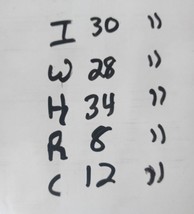 I 30 "
W 28 "
H 34 "
R 8 "
C 12 "